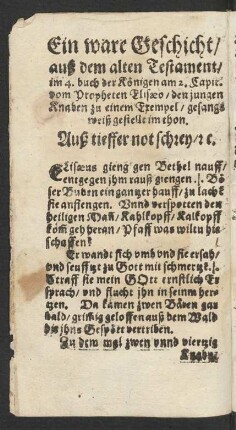 Ein ware Geschicht/
auß dem alten Testament/
im 4. buch der Königen am 2. Capit.
vom Propheten Elisæo/ den jungen
Knaben zu einem Exempel/ gesangs
weiß gestelle im thon.
Auß tieffer not schrey/ ꝛc.
Elisæus gieng gen Bethel nauff/
entgegen jhm rauß giengen. |: Bö
ser Buben ein gantzer hauff/ zu lachē
sie anfiengen. Vnnd verspotten den
heiligen Mañ/ Kahlkopff/ Kalkopff
kom̃ geh heran/ Pfaff was wiltu hie
schaffen?
Er wandt sich vmb vnd sie ersah/
vnd seufftzt zu Gott mit schmertzē. |:
Straff sie mein GOtt ernstlich Er
sprach/ vnd flucht jhn in seinm her-
tzen. Da kamen zwen Bären gar
bald/ grim̃ig geloffen auß dem Wald
die jhns Gespött vertriben.
Zu dem mal zwen vnnd viertzig
Knabē/